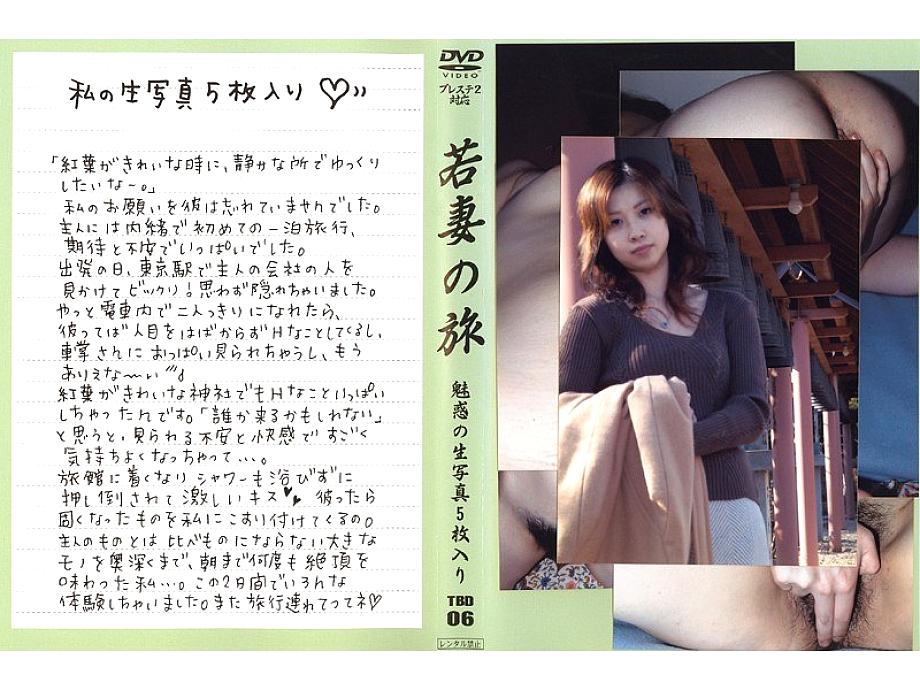 私の生写真5枚入り♡〃
「紅葉がきれいな時に、静かな所でゆっくり
したいな〜。」
私のお願いを彼は忘れていませんでした。
主人には内緒で初めての一泊旅行、
期待と不安でいっぱいでした。
出発の日、東京駅で主人の会社の人を
見かけてビックリ!思わず隠れちゃいました。
やっと電車内で二人っきりになれたら、
彼ってば人目をはばからずHなことしてくるし、
車掌さんにおっぱい見られちゃうし、もう
ありえな〜い
紅葉がきれいな神社でもHなこといっぱい
しちゃったんです。「誰か来るかもしれない」
と思うと、見られる不安と快感ですごく
気持ちよくなっちゃって…。
旅館に着くなりシャワーも浴びずに
押し倒されて激しいキス♥♥ 彼ったら
固くなったものを私にこすり付けてくるの。
主人のものとは比べものにならない大きな
モノを奥深くまで、朝まで何度も絶頂を
味わった私…。この2日間でいろんな
体験しちゃいました。また旅行連れてってネ♡
DVD
VIDEO
プレステ2
対応
若妻の旅
魅惑の生写真5枚入り
TBD
06
レンタル禁止